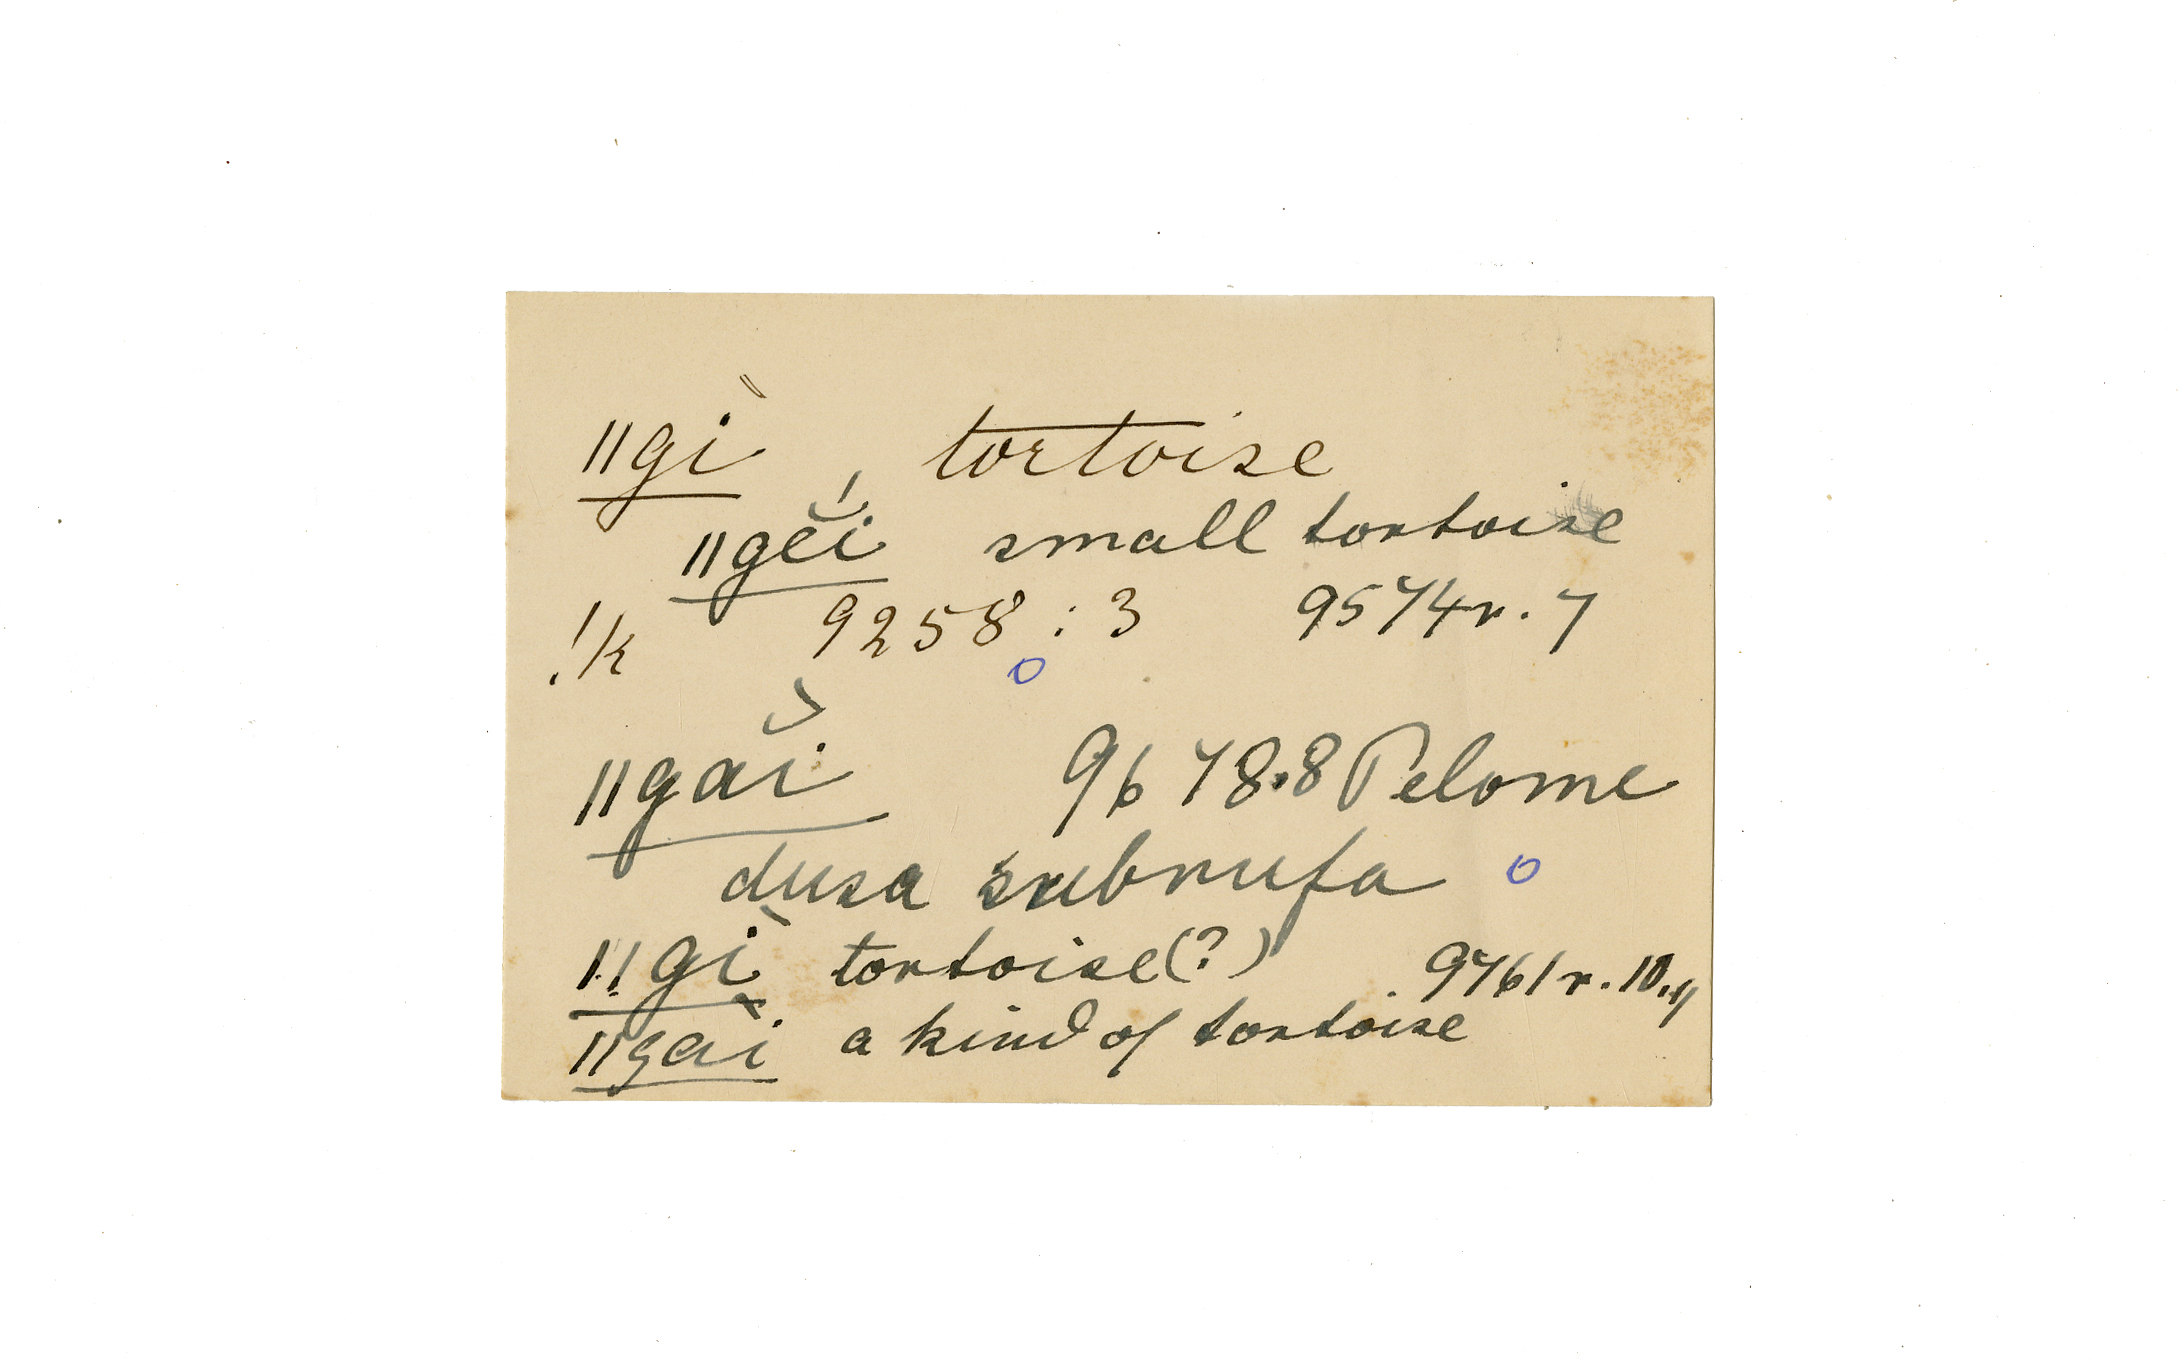 ǁgì tortoise
ǁgĕ́i small tortoise
!k 9258:3 9574r.7
ǁgăì 9678.8 Pelome
dusa subrufa
ǁgì tortoise(?) 9761r.10.
ǁgaì a kind of tortoise